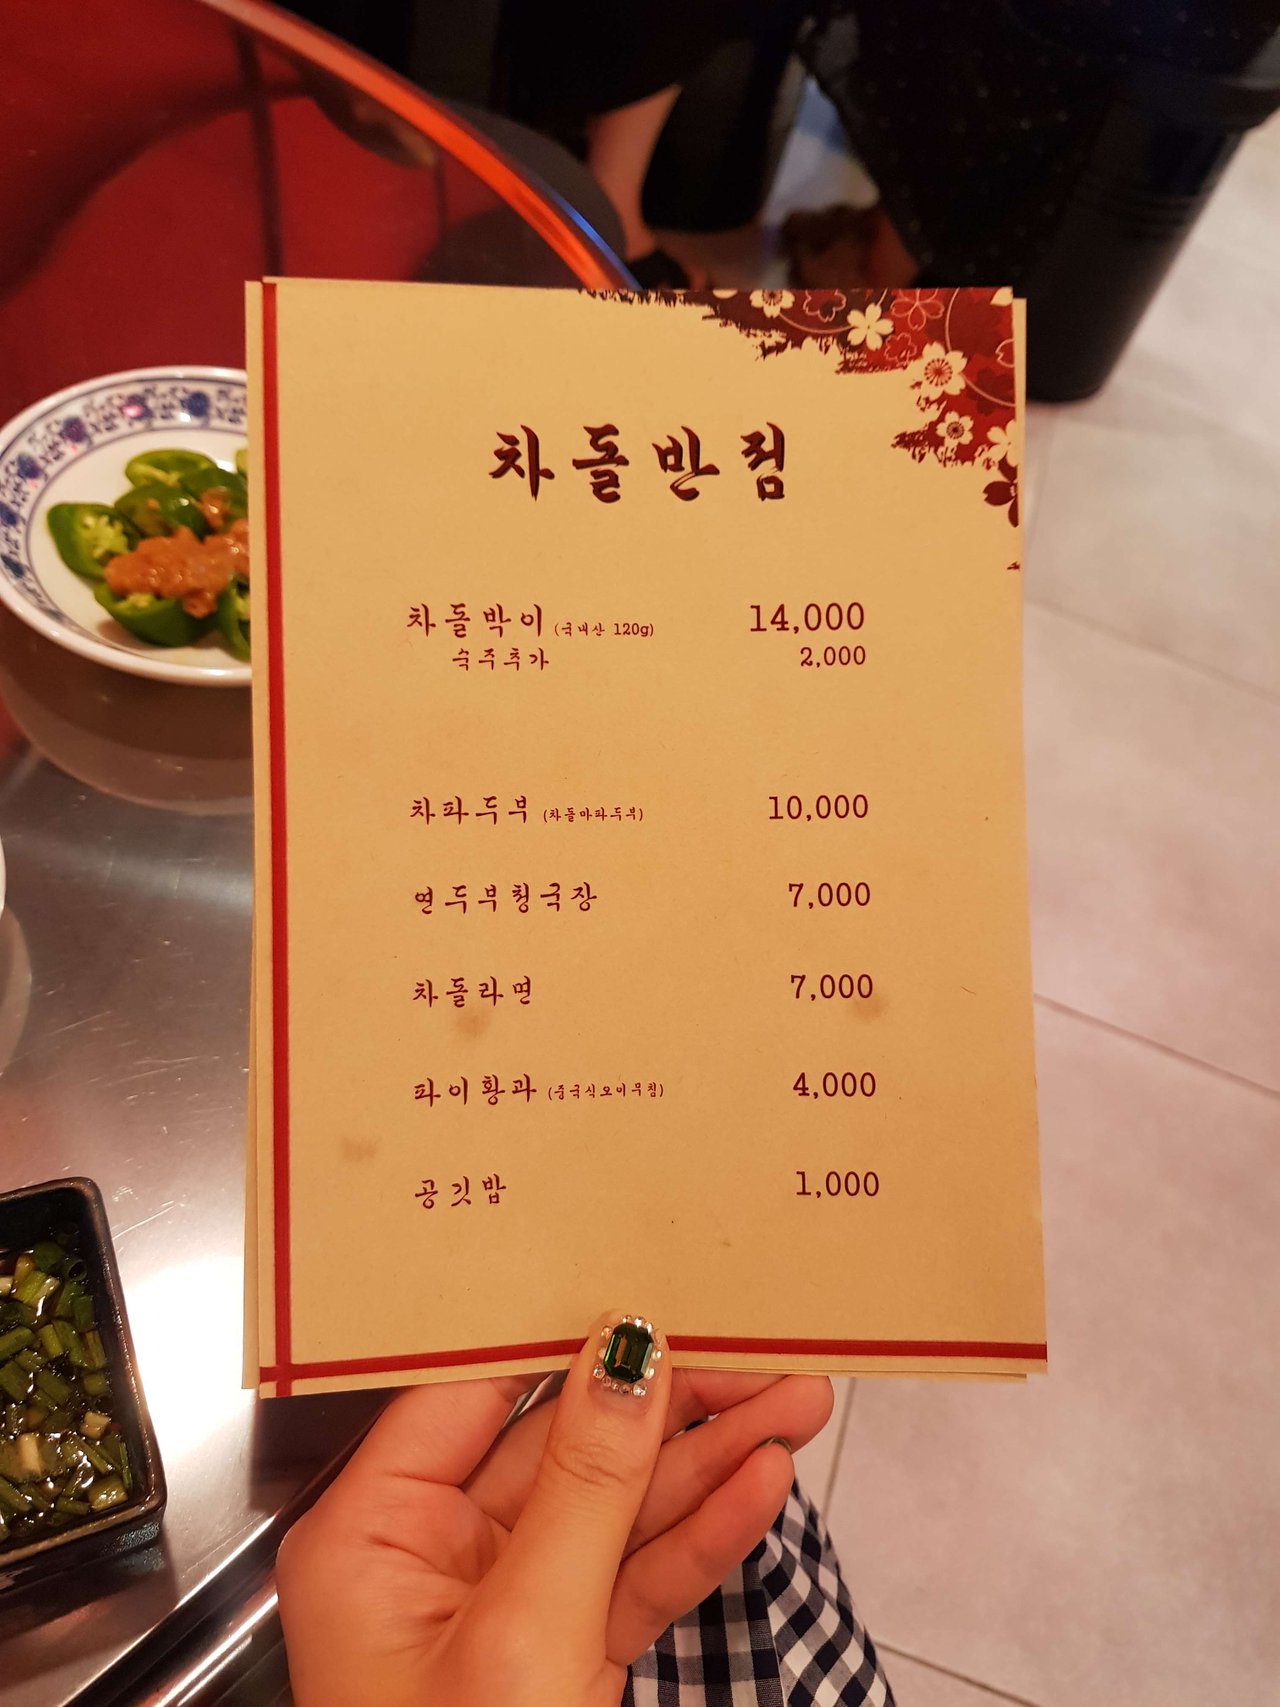 차돌반점
차돌박이 (국내산 120g) 14,000
숙주추가 2,000
차파두부 (차돌마파두부) 10,000
연두부청국장 7,000
차돌라면 7,000
파이황과 (중국식오이무침) 4,000
공깃밥 1,000